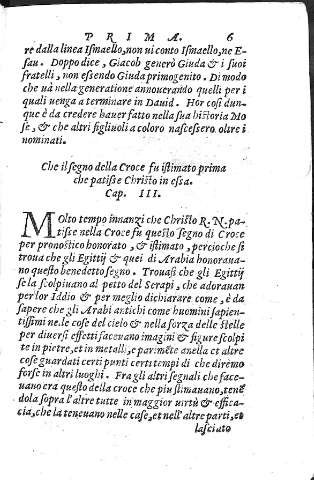 PRIMA. 6
re dalla linea Ismaello, non ui conto Ismaello, ne E-
sau. Doppo dice, Giacob generò Giuda & i suoi
fratelli, non essendo Giuda primogenito. Di modo
che uà nella generatione annouerando quelli per i
quali uenga a terminare in Dauid. Hor cosi dun-
que è da credere hauer fatto nella sua historia Mo
se, & che altri figliuoli a coloro nascessero oltre i
nominati.
Che il segno della Croce fu istimato prima
che patisse Christo in essa.
Cap. III.
MOlto tempo innanzi che Christo R. N. pa-
tisse nella Croce fu questo segno di Croce
per pronostico honorato, & istimato, percioche si
troua che gli Egittij & quei di Arabia honoraua-
no questo benedetto segno. Trouasi che gli Egittij
se la scolpiuano al petto del Serapi, che adorauan
per lor Iddio & per meglio dichiarare come, è da
sapere che gli Arabi antichi come huomini sapien-
tissimi ne le cose del cielo & nella forza delle stelle
per diuersi effetti faceuano imagini & figure scolpi
te in pietre, et in metalli, e parimẽte anella et altre
cose guardati certi punti certi tempi di che diremo
forse in altri luoghi. Fra gli altri segnali che face-
uano era questo della croce che piu stimauano, tenẽ
dola sopra l'altre tutte in maggior uirtù & effica-
cia, che la teneuano nelle case, et nell'altre parti, et
lasciato